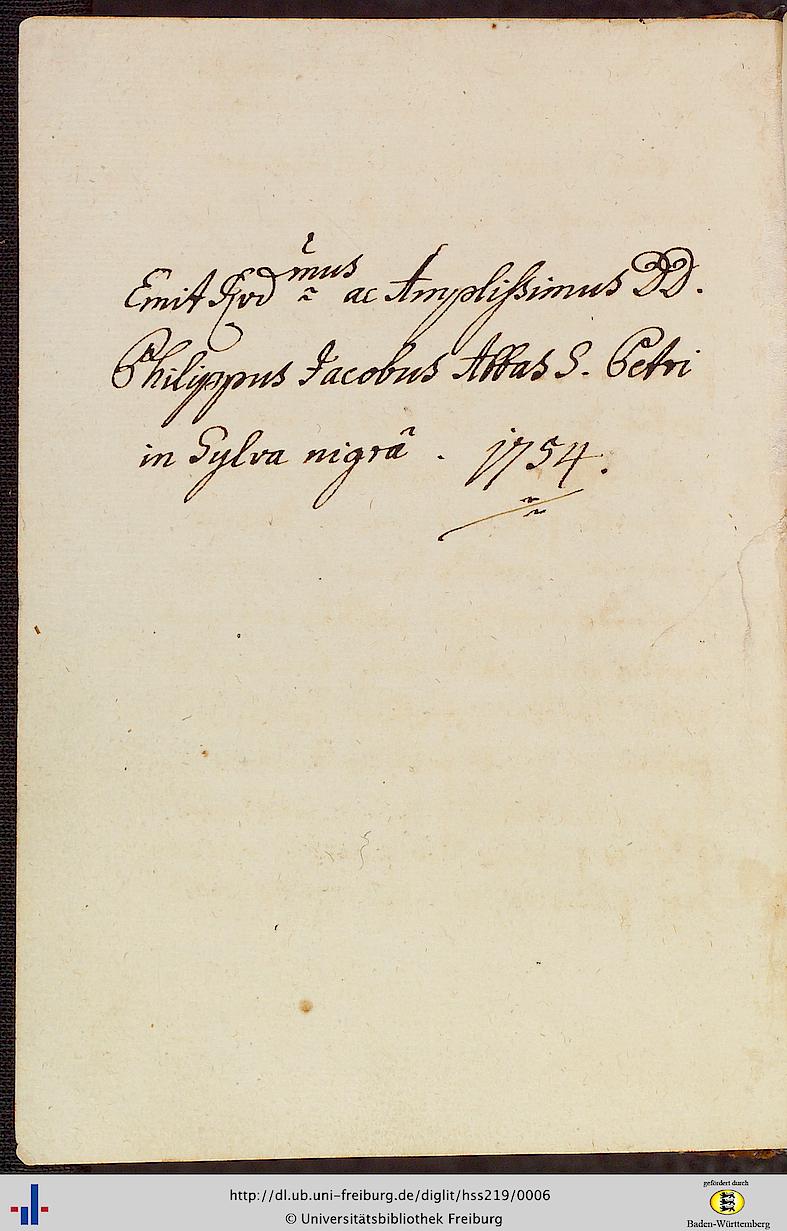 Emit Rvd mus ac Amplissimus DD.
Philippus Jacobus Abbas S. Petri
in Sylva nigrâ . 1754.
http://dl.ub.uni-freiburg.de/diglit/hss219/0006
© Universitätsbibliothek Freiburg
gefördert durch
Baden-Württemberg